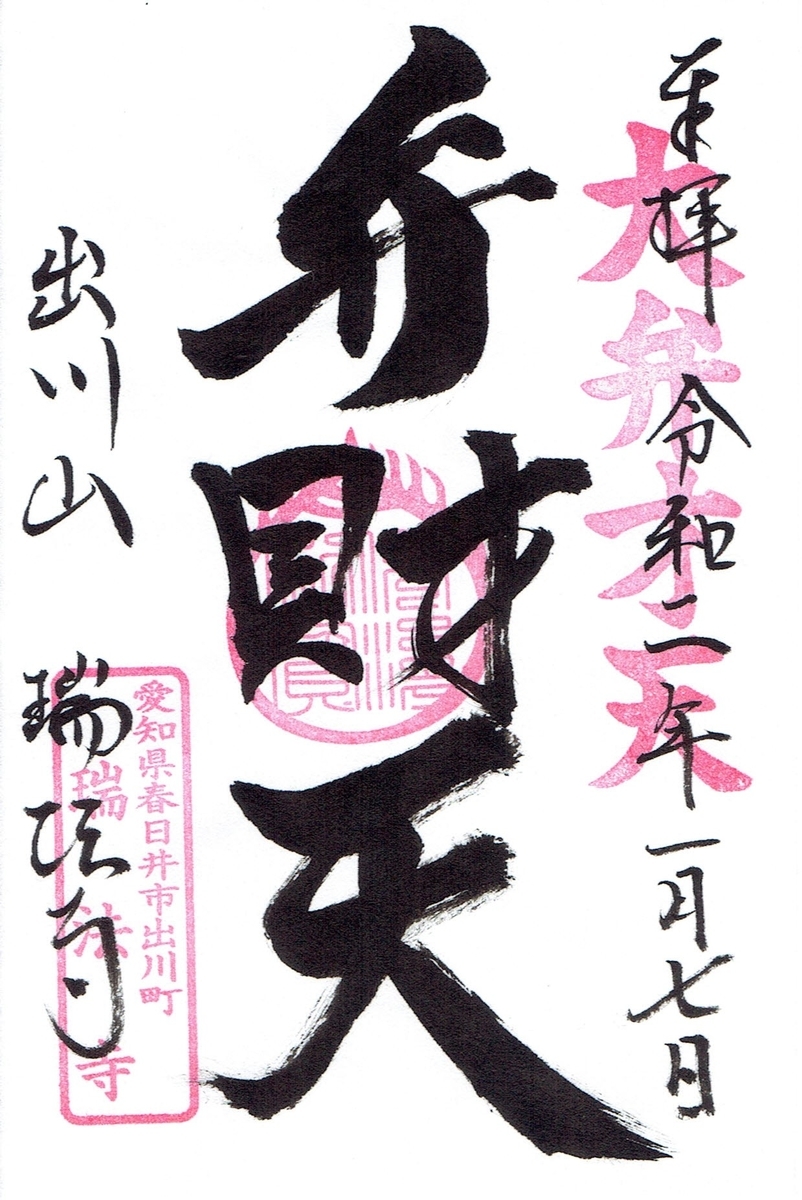 奉拝 令和二年一月七日
大弁才天
弁財天
出川山 瑞法寺
愛知県春日井市出川町
瑞法寺